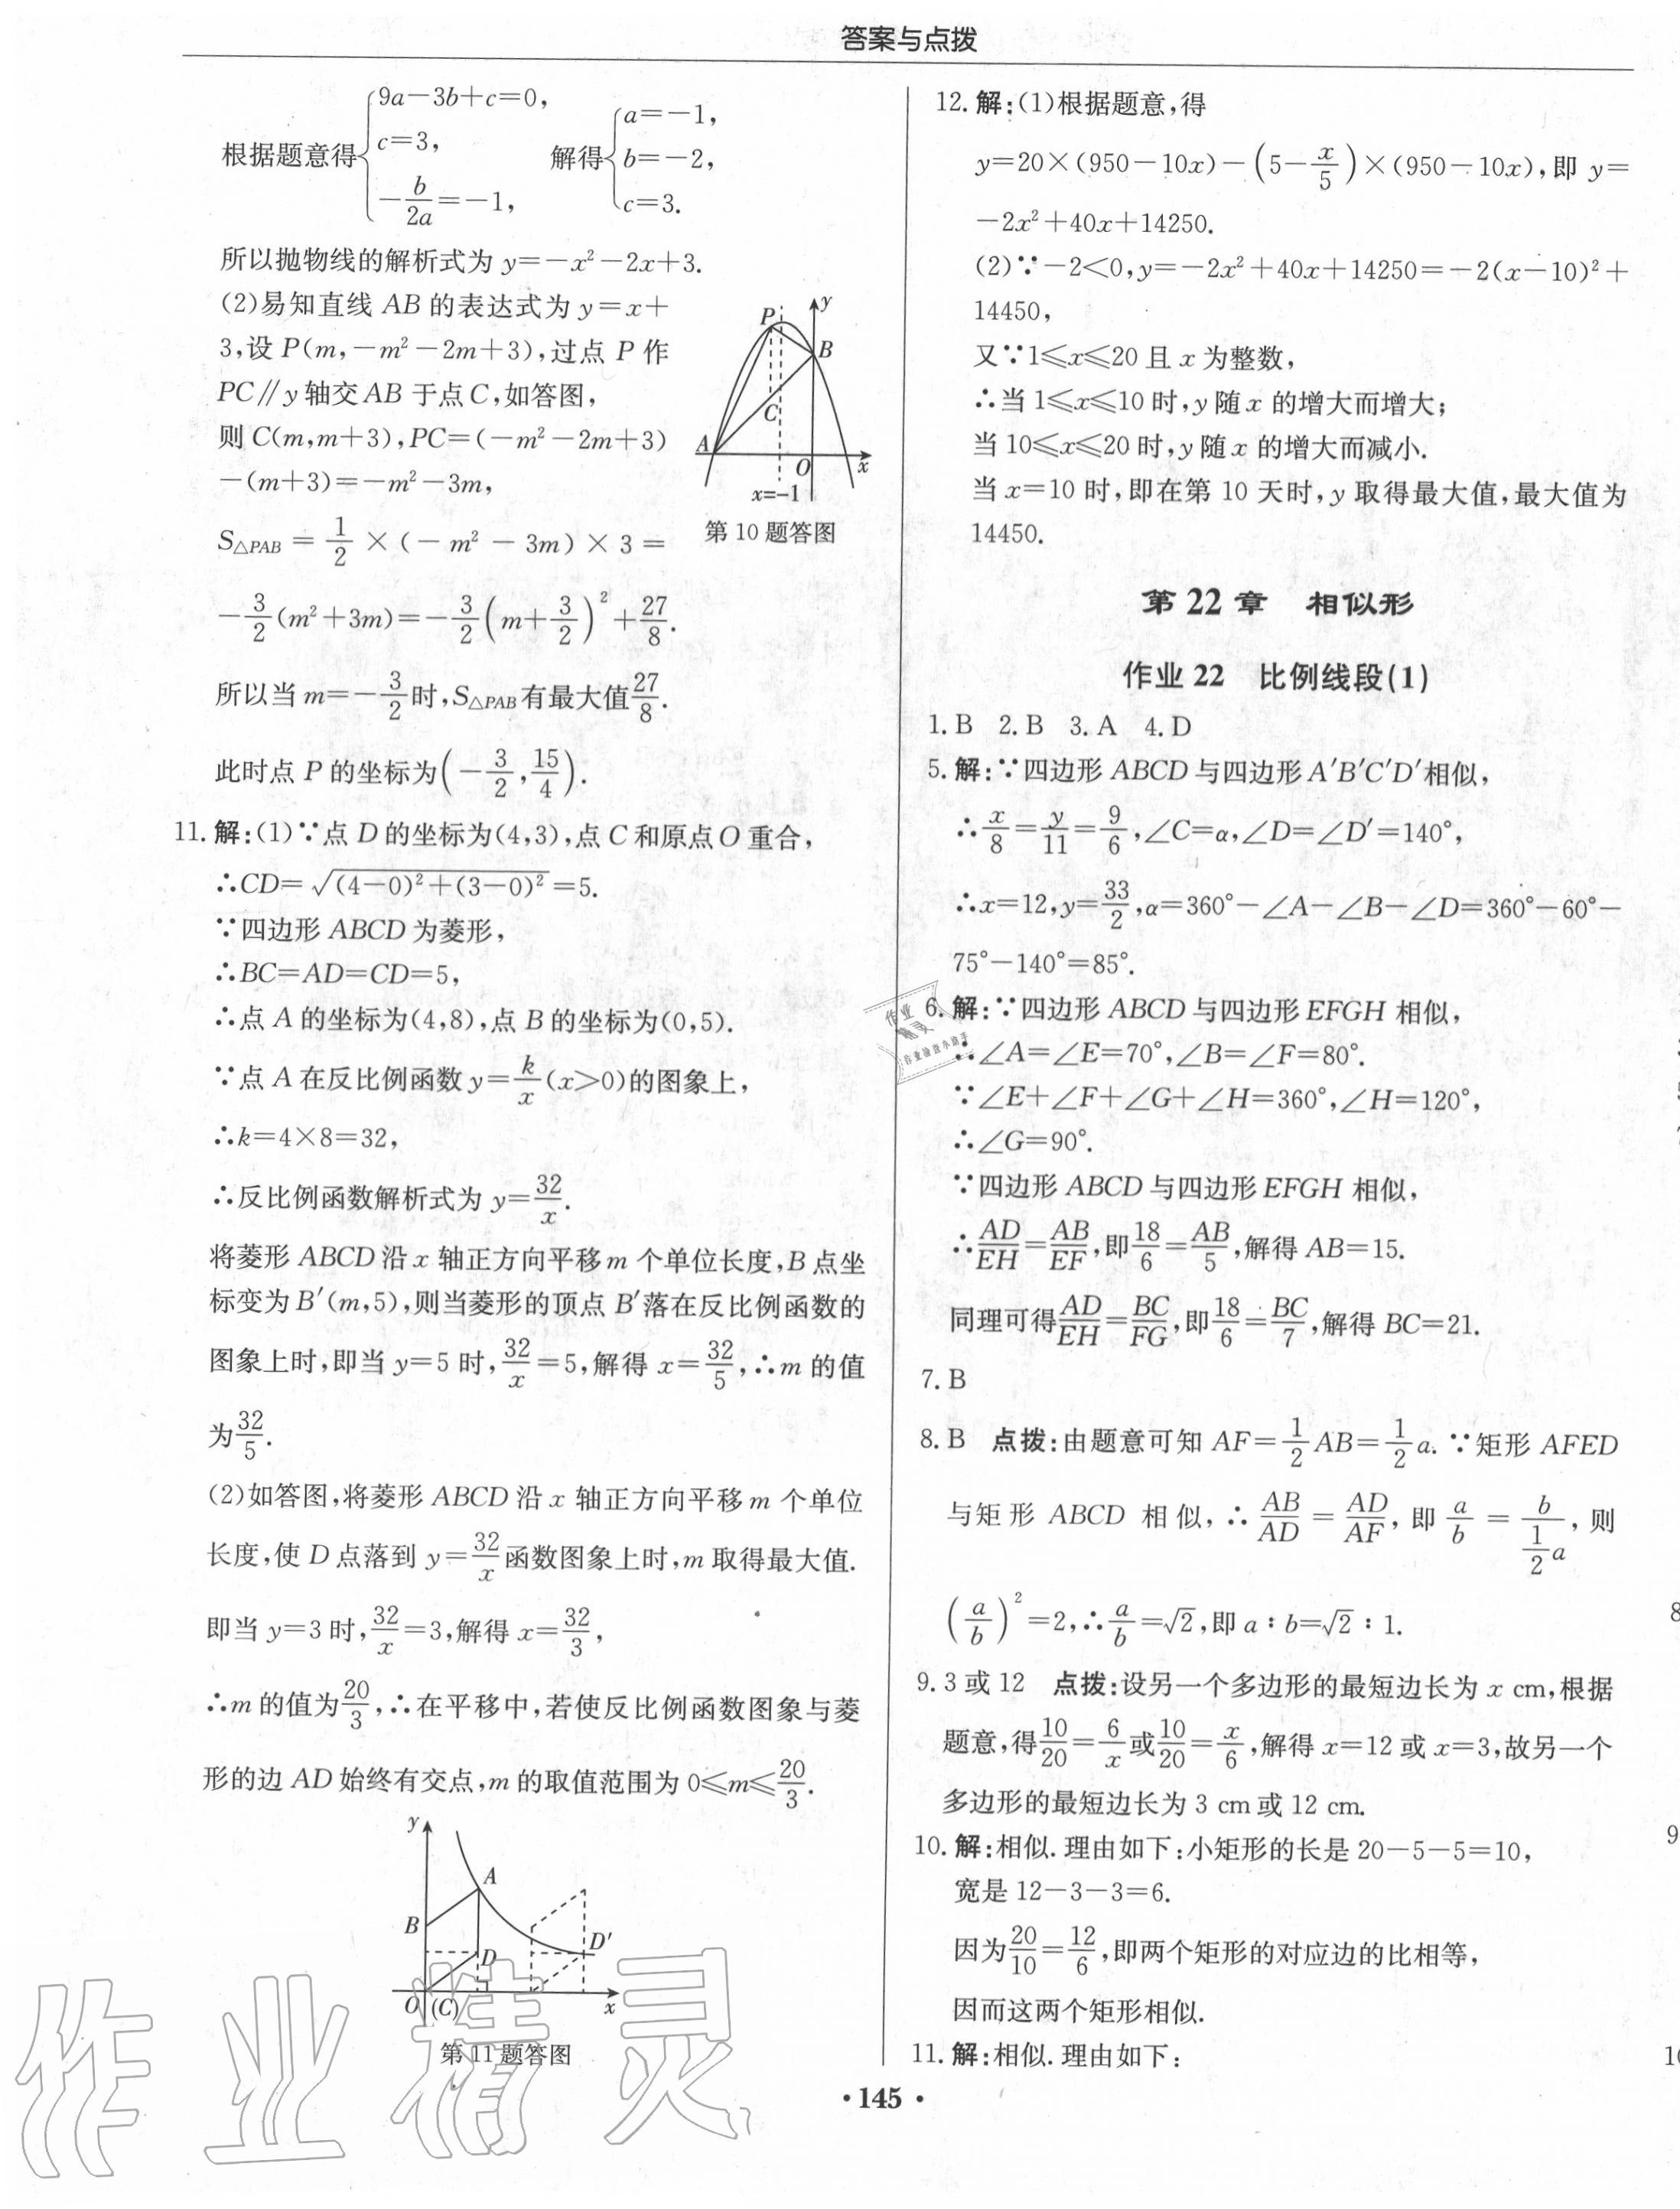 答案与点拨
根据题意得{9a－3b＋c＝0, c＝3, －b/2a＝－1, 解得{a＝－1, b＝－2, c＝3.
所以抛物线的解析式为 y＝－x²－2x＋3.
(2)易知直线 AB 的表达式为 y＝x＋
3,设 P(m,－m²－2m＋3),过点 P 作
PC∥y 轴交 AB 于点 C,如答图,
则 C(m,m＋3),PC＝(－m²－2m＋3)
－(m＋3)＝－m²－3m,
S△PAB ＝ 1/2 ×(－m²－3m)×3＝
－3/2(m²＋3m)＝－3/2(m＋3/2)²＋27/8.
所以当 m＝－3/2时,S△PAB有最大值27/8.
此时点 P 的坐标为(－3/2,15/4).
P
y
B
C
A
O
x
x=-1
第 10 题答图
11. 解:(1)∵点 D 的坐标为(4,3),点 C 和原点 O 重合,
∴CD＝√((4－0)²＋(3－0)²)＝5.
∵四边形 ABCD 为菱形,
∴BC＝AD＝CD＝5,
∴点 A 的坐标为(4,8),点 B 的坐标为(0,5).
∵点 A 在反比例函数 y＝k/x(x>0)的图象上,
∴k＝4×8＝32,
∴反比例函数解析式为 y＝32/x.
将菱形 ABCD 沿 x 轴正方向平移 m 个单位长度,B 点坐
标变为 B′(m,5),则当菱形的顶点 B′落在反比例函数的
图象上时,即当 y＝5 时,32/x＝5,解得 x＝32/5,∴m 的值
为32/5.
(2)如答图,将菱形 ABCD 沿 x 轴正方向平移 m 个单位
长度,使 D 点落到 y＝32/x函数图象上时,m 取得最大值.
即当 y＝3 时,32/x＝3,解得 x＝32/3,
∴m 的值为20/3,∴在平移中,若使反比例函数图象与菱
形的边 AD 始终有交点,m 的取值范围为 0≤m≤20/3.
y
A
B
D
D′
O (C)
x
第 11 题答图
12. 解:(1)根据题意,得
y＝20×(950－10x)－(5－x/5)×(950－10x),即 y＝
－2x²＋40x＋14250.
(2)∵－2<0,y＝－2x²＋40x＋14250＝－2(x－10)²＋
14450,
又∵1≤x≤20 且 x 为整数,
∴当 1≤x≤10 时,y 随 x 的增大而增大;
当 10≤x≤20 时,y 随 x 的增大而减小.
当 x＝10 时,即在第 10 天时,y 取得最大值,最大值为
14450.
第 22 章　相似形
作业 22　比例线段(1)
1. B　2. B　3. A　4. D
5. 解:∵四边形 ABCD 与四边形 A′B′C′D′相似,
∴x/8＝y/11＝9/6,∠C＝α,∠D＝∠D′＝140°,
∴x＝12,y＝33/2,α＝360°－∠A－∠B－∠D＝360°－60°－
75°－140°＝85°.
6. 解:∵四边形 ABCD 与四边形 EFGH 相似,
∴∠A＝∠E＝70°,∠B＝∠F＝80°.
∵∠E＋∠F＋∠G＋∠H＝360°,∠H＝120°,
∴∠G＝90°.
∵四边形 ABCD 与四边形 EFGH 相似,
∴AD/EH＝AB/EF,即18/6＝AB/5,解得 AB＝15.
同理可得AD/EH＝BC/FG,即18/6＝BC/7,解得 BC＝21.
7. B
8. B　点拨:由题意可知 AF＝1/2 AB＝1/2 a. ∵矩形 AFED
与矩形 ABCD 相似,∴AB/AD＝AD/AF,即 a/b ＝ b/(1/2 a),则
(a/b)²＝2,∴a/b＝√2,即 a∶b＝√2∶1.
9. 3 或 12　点拨:设另一个多边形的最短边长为 x cm,根据
题意,得10/20＝6/x或10/20＝x/6,解得 x＝12 或 x＝3,故另一个
多边形的最短边长为 3 cm 或 12 cm.
10. 解:相似. 理由如下:小矩形的长是 20－5－5＝10,
宽是 12－3－3＝6.
因为20/10＝12/6,即两个矩形的对应边的比相等,
因而这两个矩形相似.
11. 解:相似. 理由如下:
·145·
作业精灵